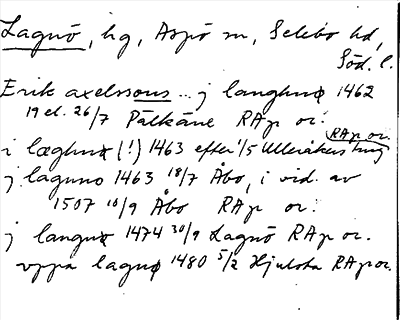 Lagnö, hg, Aspö sn, Selebo hd,
Söd. l.
Erik axelssons … j langhnø 1462
19 el. 26/7 Pälkäne RAp or.
i læghnø (!) 1463 efter 1/5 Ulleråkers ting RAp or.
j lagnno 1463 18/7 Åbo, i vid. av
1507 10/9 Åbo RAp or.
j langnø 1474 30/9 Lagnö RAp or.
vppa lagnø 1480 5/2 Hjulsta RAp or.